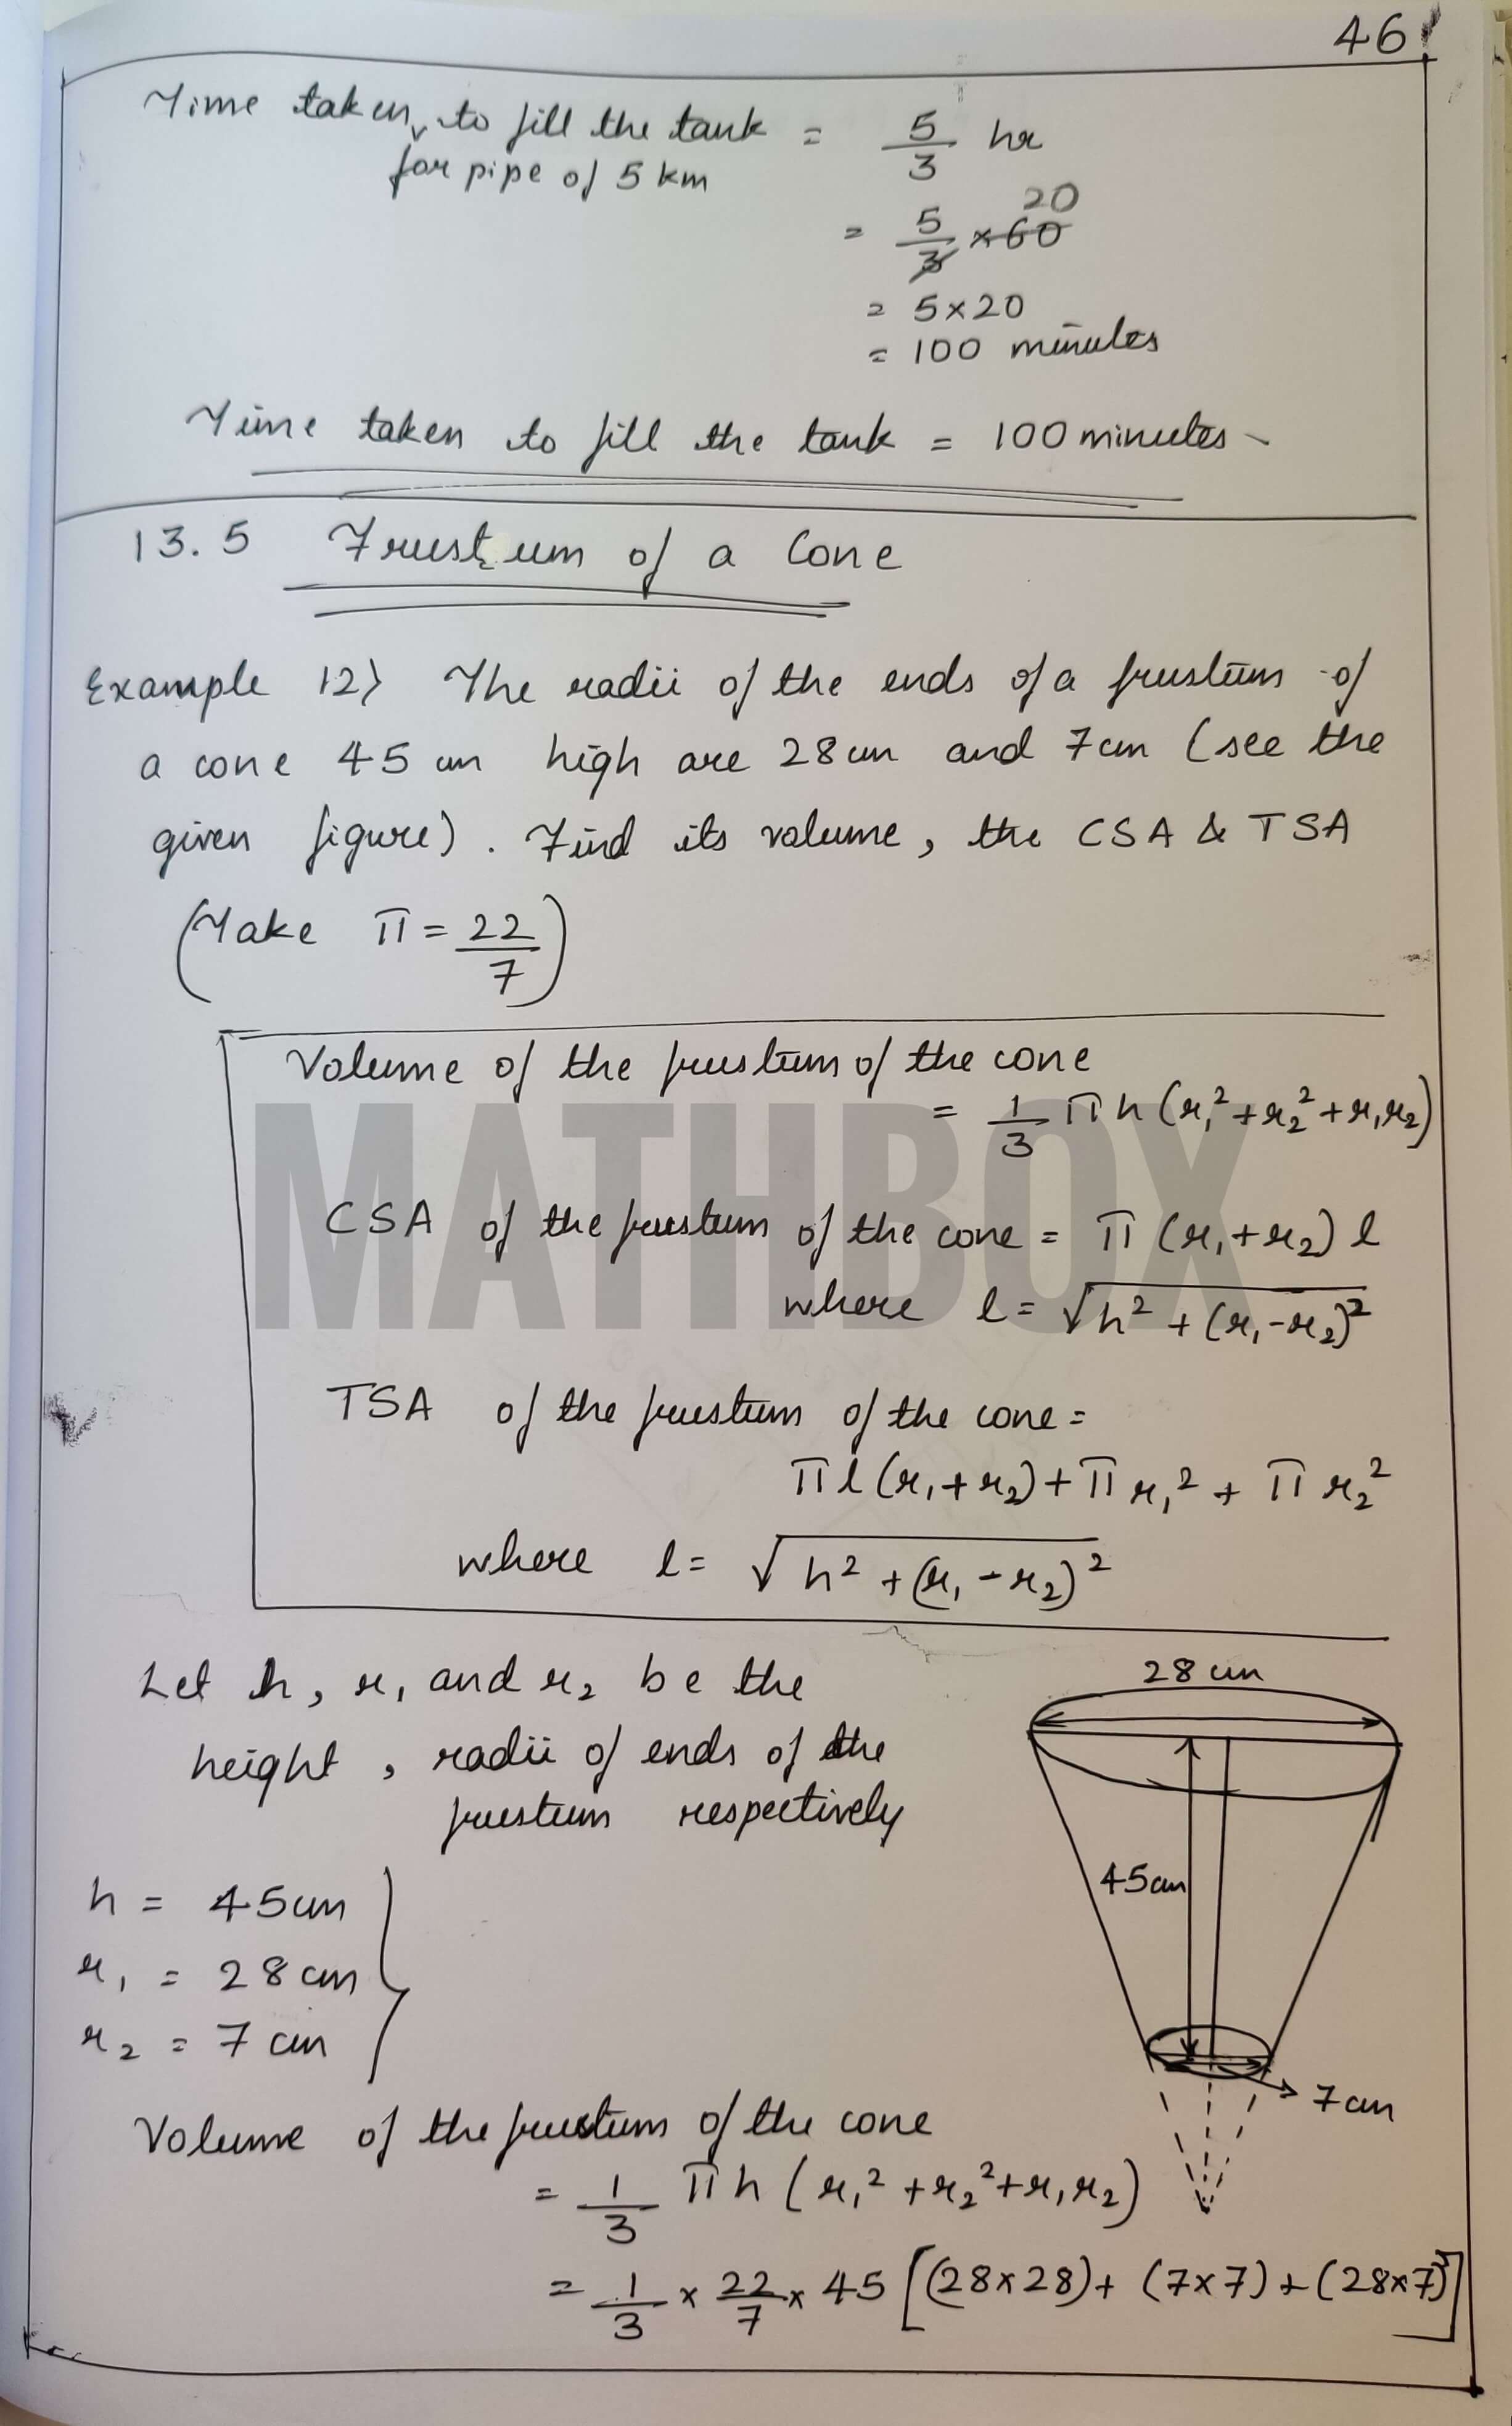 46
Time taken, to fill the tank = 5/3 hr
for pipe of 5 km
= 5/3 × 60 20
= 5×20
= 100 minutes
Time taken to fill the tank = 100 minutes
13.5 Frustum of a Cone
Example 12) The radii of the ends of a frustum of
a cone 45 cm high are 28 cm and 7 cm (see the
given figure). Find its volume, the CSA & TSA
(Take π = 22/7)
Volume of the frustum of the cone
= 1/3 πh(r₁²+r₂²+r₁r₂)
MATHBOX
CSA of the frustum of the cone = π(r₁+r₂)l
where l = √h²+(r₁-r₂)²
TSA of the frustum of the cone =
πl(r₁+r₂)+πr₁²+πr₂²
where l = √h²+(r₁-r₂)²
Let h, r₁ and r₂ be the
height, radii of ends of the
frustum respectively
28 cm
45cm
7cm
h = 45cm
r₁ = 28cm
r₂ = 7 cm
Volume of the frustum of the cone
= 1/3 πh (r₁²+r₂²+r₁r₂)
= 1/3 × 22/7 × 45 [(28×28)+(7×7)+(28×7)]